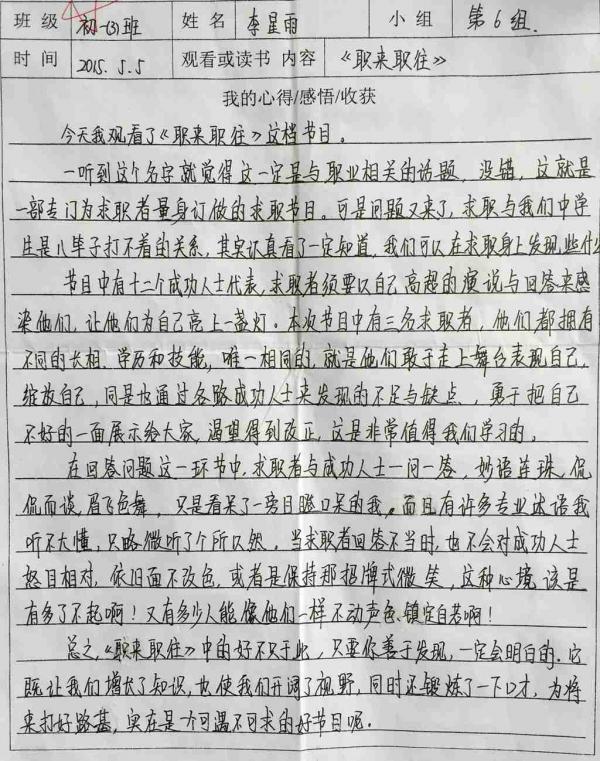 班级 初一(3)班 姓名 李星雨 小组 第6组.
时间 2015.5.5 观看或读书 内容 《职来职往》
我的心得/感悟/收获
今天我观看了《职来职往》这档节目。
一听到这个名字就觉得这一定是与职业相关的话题,没错,这就是
一部专门为求职者量身订做的求职节目。可是问题又来了,求职与我们中学
生是八竿子打不着的关系,其实认真看了一定知道,我们可以在求职身上发现些什么
节目中有十二个成功人士代表,求职者须要以自己高超的演说与回答来感
染他们,让他们为自己亮上一盏灯。本次节目中有三名求职者,他们都拥有
不同的长相、学历和技能,唯一相同的,就是他们敢于走上舞台表现自己,
绽放自己,同是也通过各路成功人士来发现的不足与缺点,勇于把自己
不好的一面展示给大家,渴望得到改正,这是非常值得我们学习的。
在回答问题这一环节中,求职者与成功人士一问一答,妙语连珠,侃
侃而谈,眉飞色舞,只是看呆了一旁目瞪口呆的我,而且有许多专业述语我
听不大懂,只略微听了个所以然。当求职者回答不当时,也不会对成功人士
怒目相对,依旧面不改色,或者是保持那招牌式微笑,这种心境,该是
有多了不起啊!又有多少人能像他们一样不动声色、镇定自若啊!
总之,《职来职往》中的好不只于此,只要你善于发现,一定会明白的,它
既让我们增长了知识,也使我们开阔了视野,同时还锻炼了一下口才,为将
来打好路基,实在是一方可遇不可求的好节目呢。